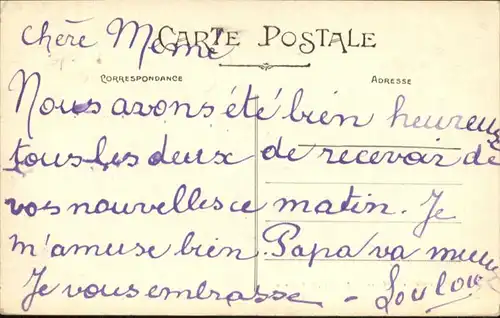 CARTE POSTALE
CORRESPONDANCE
ADRESSE
Chère Mémé
Nous avons été bien heureux
tous les deux de recevoir de
vos nouvelles ce matin. Je
m'amuse bien Papa va mieux
Je vous embrasse - Loulou